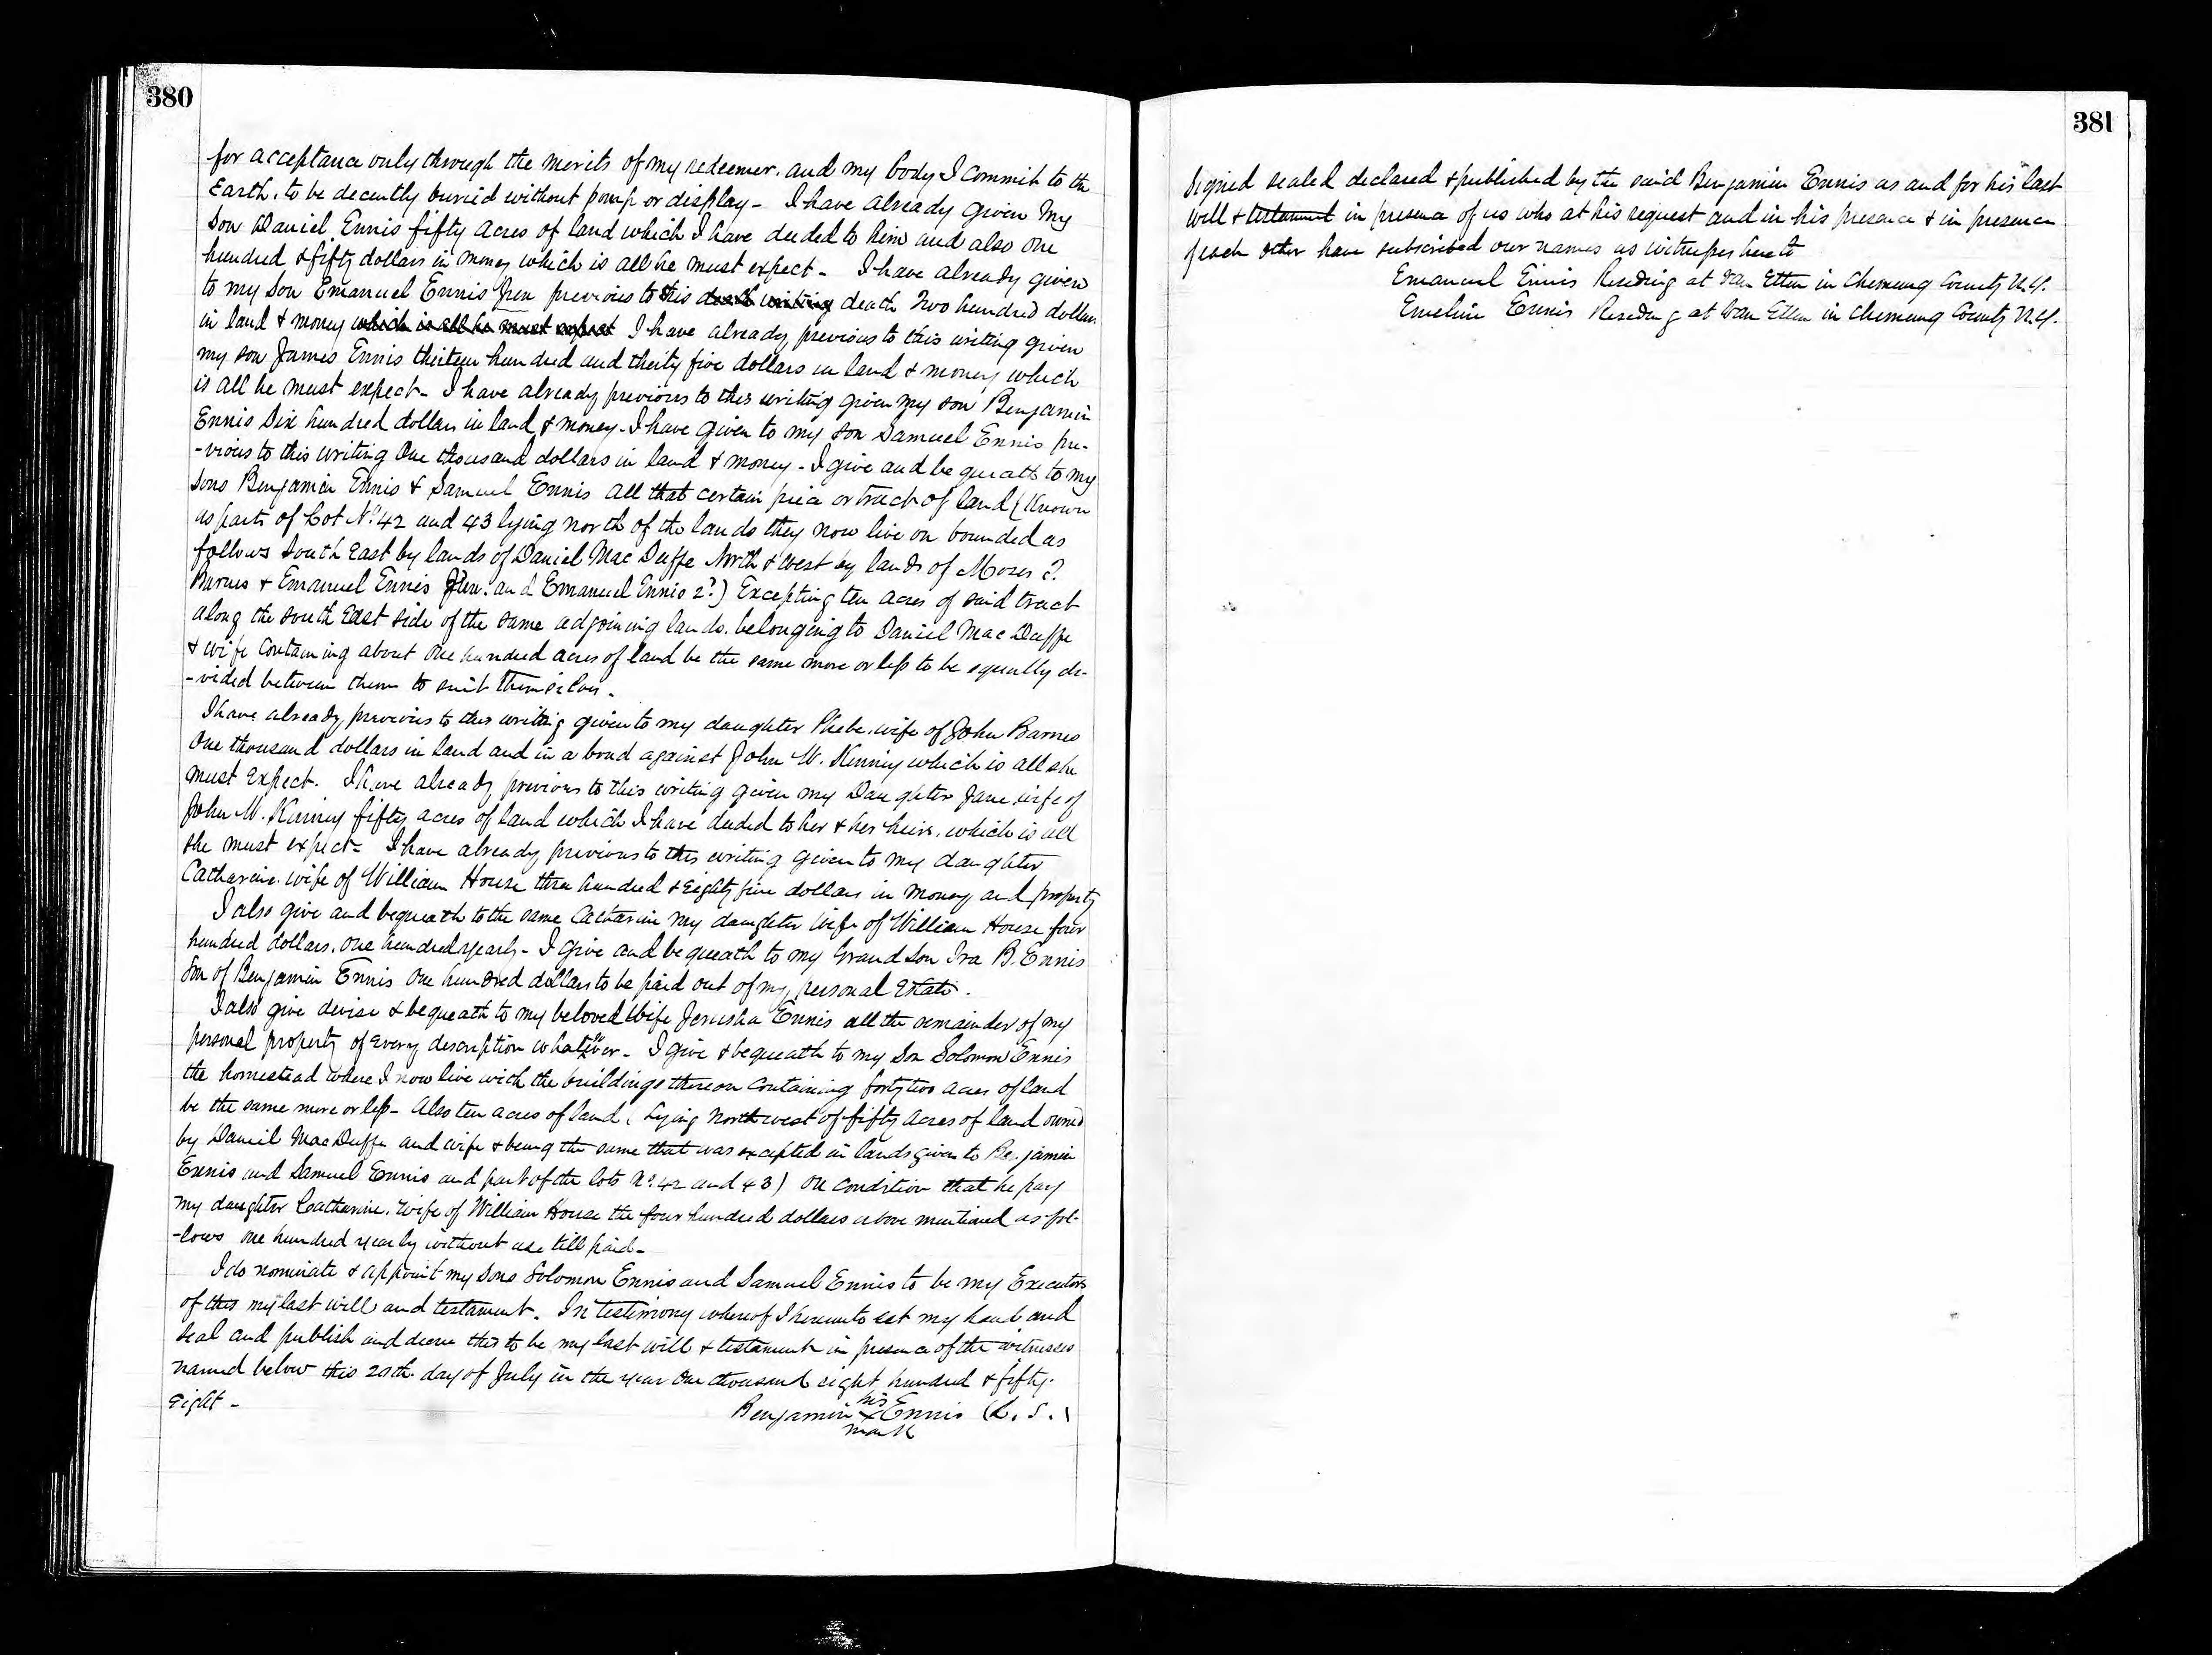 380
for acceptance only through the merits of my redeemer. and my body I commit to the
Earth. to be decently buried without pomp or display - I have already given my
Son Daniel Ennis fifty acres of land which I have deeded to him and also one
hundred & fifty dollars in money which is all he must expect - I have already given
to my Son Emanuel Ennis previous to this death writing death Two hundred dollars
in land & money which is all he must expect I have already previous to this writing given
my son James Ennis thirteen hundred and thirty five dollars in land & money which
is all he must expect - I have already previous to this writing given my son Benjamin
Ennis Six hundred dollars in land & money - I have given to my son Samuel Ennis pre-
-vious to this writing One thousand dollars in land & money - I give and bequeath to my
Sons Benjamin Ennis & Samuel Ennis all that certain piece or tract of land (Known
as parts of Lot No. 42 and 43 lying north of the lands they now live on bounded as
follows South East by lands of Daniel Mac Duffe North & West by lands of Moses ?.
Barnes & Emanuel Ennis and Emanuel Ennis 2?) Excepting ten acres of said tract
along the south East side of the same adjoining lands. belonging to Daniel Mac Duffe
& wife Containing about One hundred acres of land be the same more or less to be equally di-
-vided between them to suit themselves.
I have already previous to this writing given to my daughter Phebe. wife of John Barnes
One thousand dollars in land and in a bond against John W. Kinney which is all she
must expect. I have already previous to this writing given my Daughter Jane wife of
John W. Kinney fifty acres of land which I have deeded to her & her heirs. which is all
she must expect - I have already previous to this writing given to my daughter
Catharine. wife of William House three hundred & Eighty five dollars in money and property
I also give and bequeath to the same Catharine my daughter wife of William House four
hundred dollars. one hundred yearly - I give and bequeath to my Grand Son Ira B. Ennis
Son of Benjamin Ennis One hundred dollars to be paid out of my personal Estate.
I also give devise & bequeath to my beloved Wife Jerusha Ennis all the remainder of my
personal property of Every description whatever - I give & bequeath to my Son Solomon Ennis
the homestead where I now live with the buildings thereon Containing forty two acres of land
be the same more or less - Also ten acres of land (Lying North west of fifty acres of land owned
by Daniel Mac Duffe and wife & being the same that was excepted in lands given to Benjamin
Ennis and Samuel Ennis and part of the lots No. 42 and 43) On Condition that he pay
my daughter Catharine. wife of William House the four hundred dollars above mentioned as fol-
-lows One hundred yearly without use till paid -
I do nominate & appoint my Sons Solomon Ennis and Samuel Ennis to be my Executors
of this my last will and testament. In testimony whereof I hereunto set my hand and
Seal and publish and decree this to be my last will & testament in presence of the witnesses
named below this 20th. day of July in the year One thousand eight hundred & fifty-
eight -
his
Benjamin X Ennis (L. S.)
mark
381
Signed sealed declared & published by the said Benjamin Ennis as and for his last
Will & testament in presence of us who at his request and in his presence & in presence
of each other have subscribed our names as witnesses hereto
Emanuel Ennis Residing at Van Etten in Chemung County N.Y.
Emeline Ennis Residing at Van Etten in Chemung County N.Y.